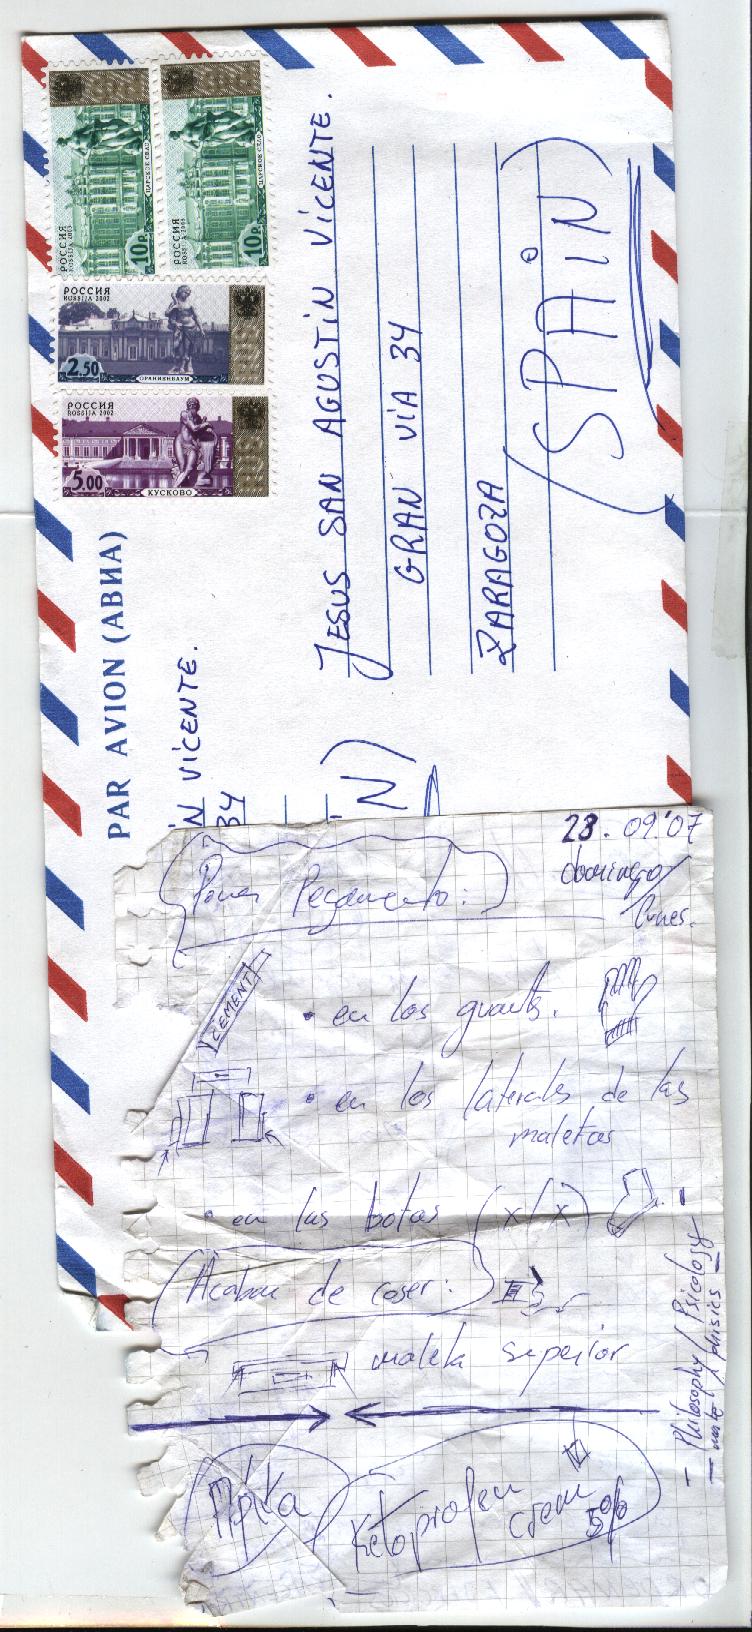 РОССИЯ
ROSSIJA 2003
10р.
ЦАРСКОЕ СЕЛО
РОССИЯ
ROSSIJA 2003
10р.
ЦАРСКОЕ СЕЛО
РОССИЯ
ROSSIJA 2002
2.50
ОРАНИЕНБАУМ
РОССИЯ
ROSSIJA 2002
5.00
КУСКОВО
PAR AVION (АВИА)
JESUS SAN AGUSTIN VICENTE.
GRAN VIA 34
ZARAGOZA
(SPAIN)
IN VICENTE.
34
IN)
23. 09.'07
domingo/
lunes.
Poner Pegamento:
CEMENT
• en los guants.
• en los laterales de las
maletas
• en las botas (x/x)
Acabar de coser:
maleta superior
Ketoprofen
crem
5%
- Philosophy / Psicology -
- mate / phisics -